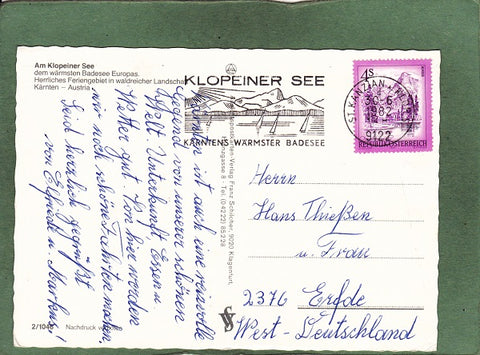 Am Klopeiner See
dem wärmsten Badesee Europas.
Herrliches Feriengebiet in waldreicher Landschaft
Kärnten – Austria
KLOPEINER SEE
KÄRNTENS WÄRMSTER BADESEE
4S
ST. KANZIAN
30.-6.
1982
9122
REPUBLIK ÖSTERREICH
ist auch eine reizvolle
Gegend von unserer schönen
Welt. Unterkunft Essen u.
Wetter gut. Von hier werden
wir noch schöne Fahrten machen.
Seid herzlich gegrüßt
von Elfriede u. Markus!
Verlag Franz Schilcher, 9020 Klagenfurt,
8 - Tel. (04222) 85228
Herrn
Hans Thießen
u. Frau
2376 Erfde
West-Deutschland
2/1046
Nachdruck verboten